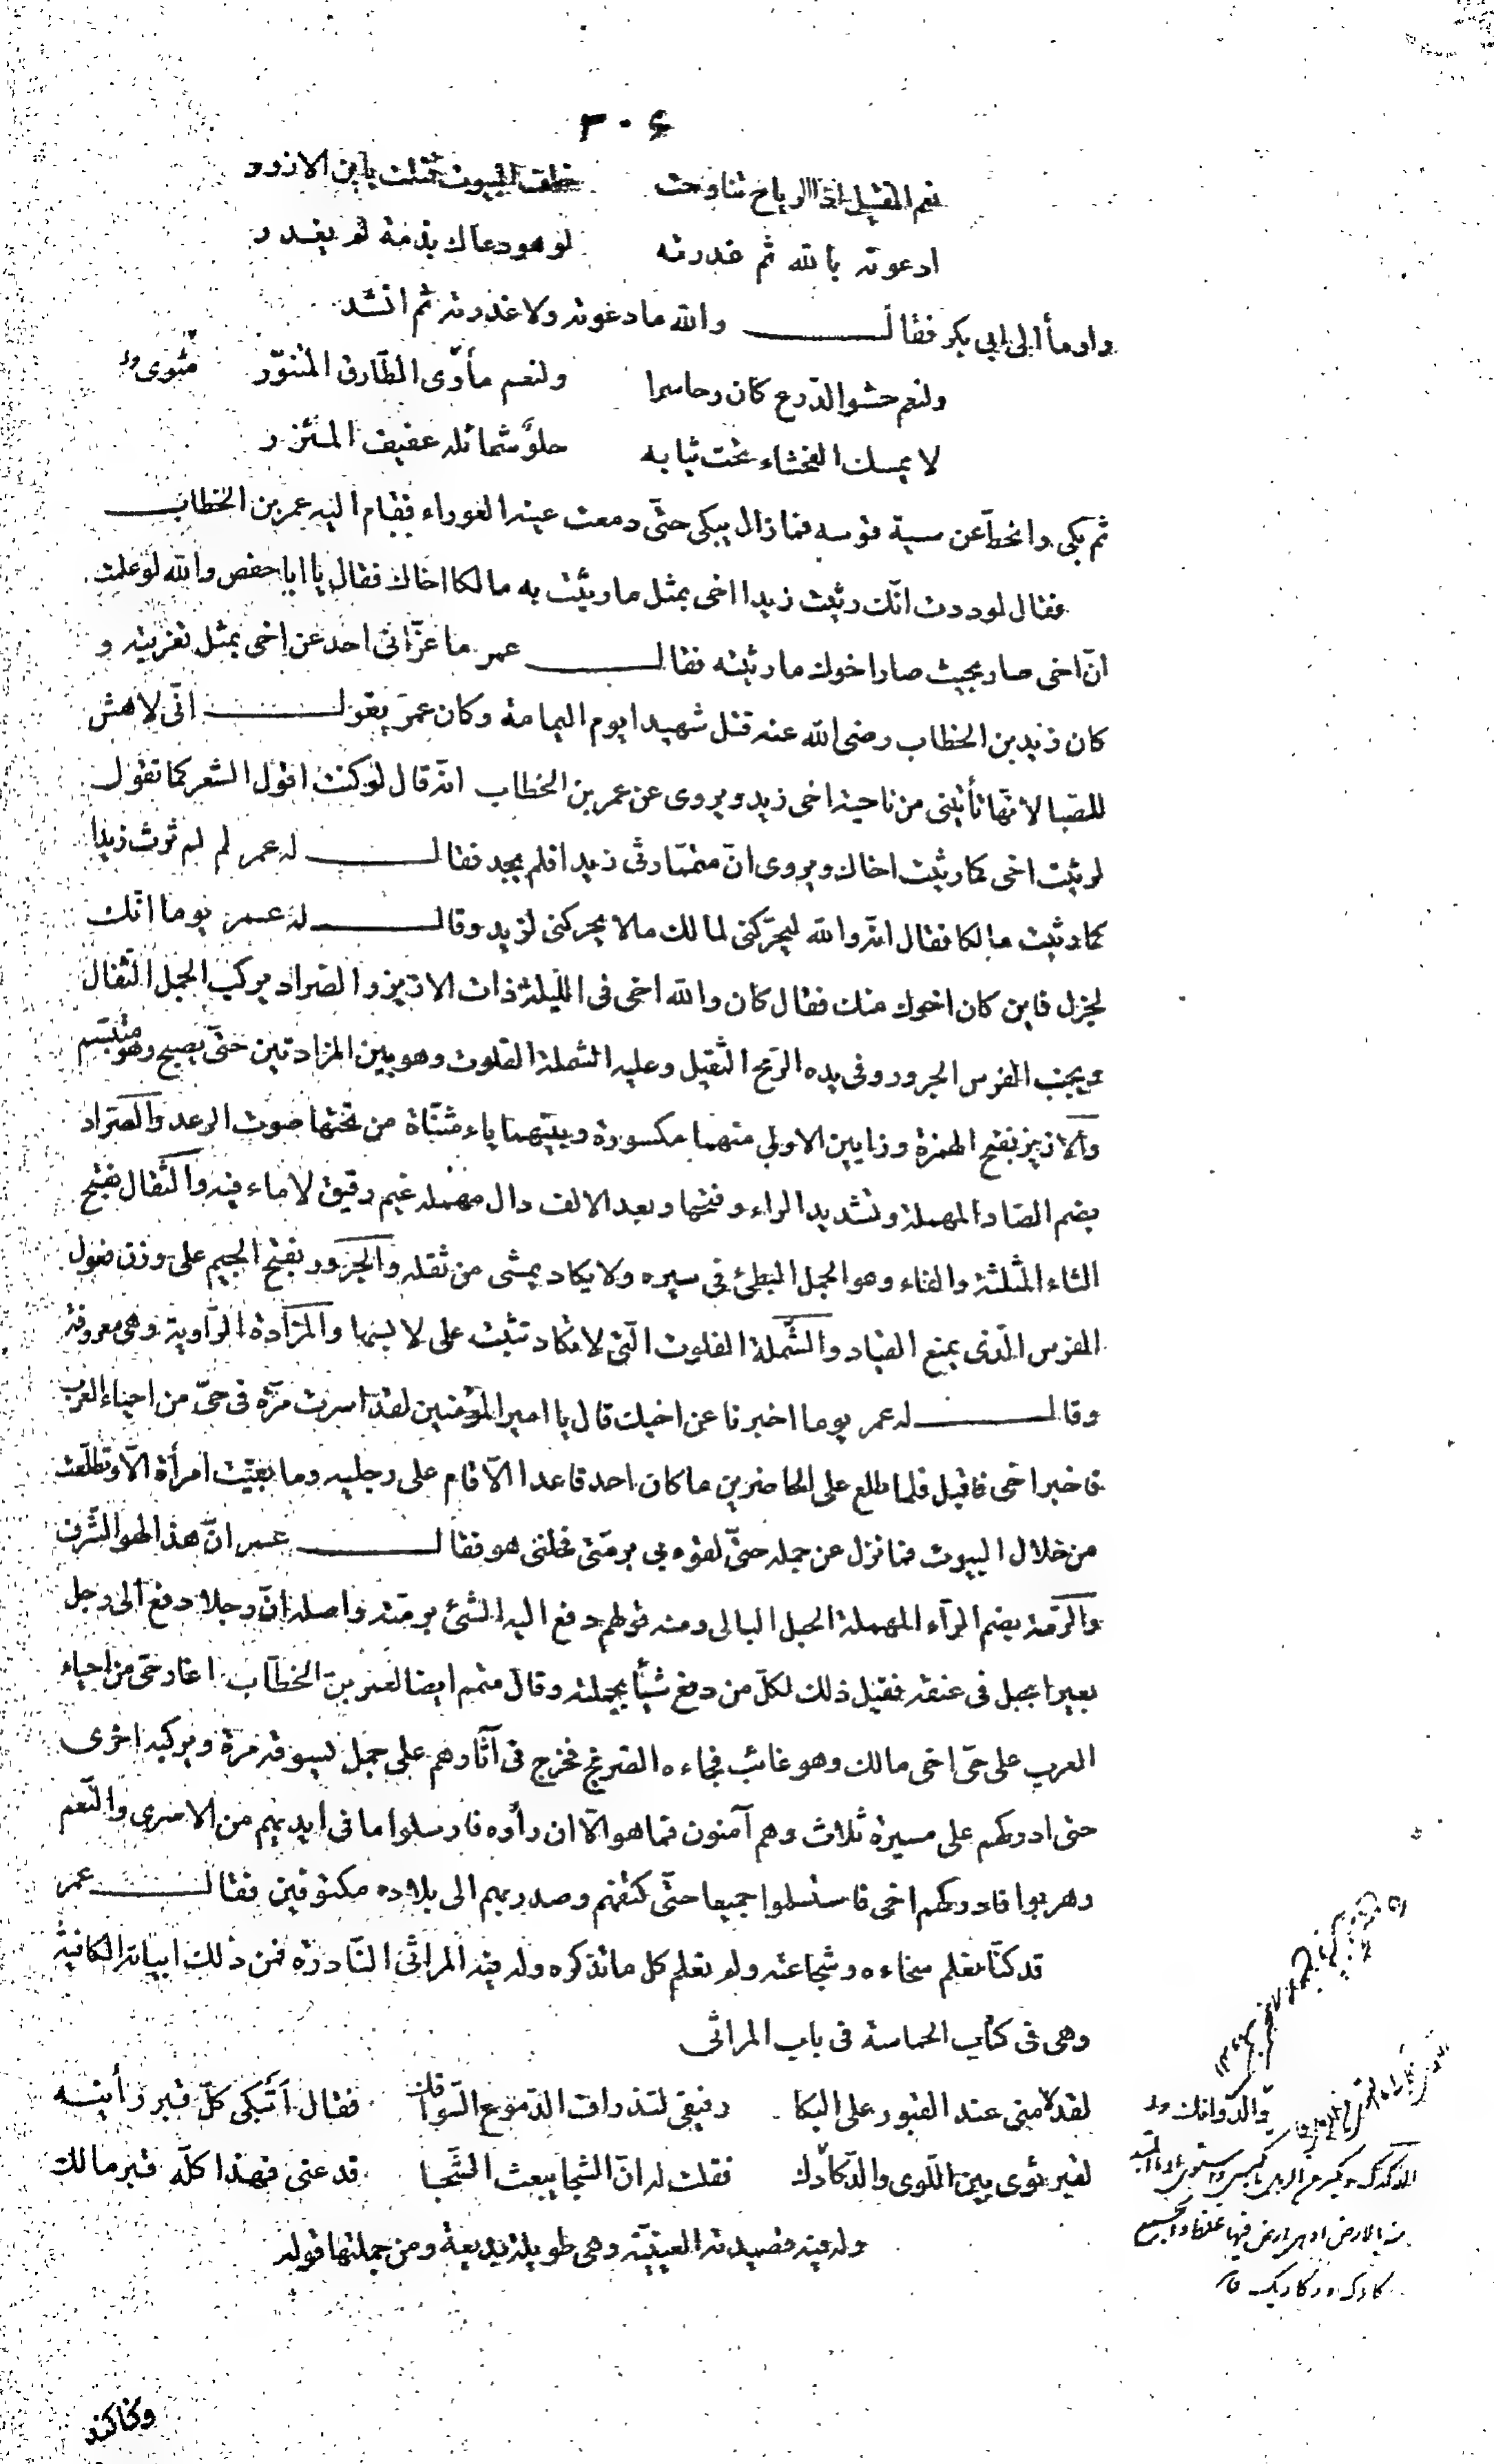 ٣٠٤
نعم القتيل اذا الرياح تناوحت خلف البيوت قتلت يا ابن الازور
ادعوته بالله ثم غدرته لو هو دعاك بذمة لم يغدر
واومأ الى ابى بكر فقال والله ما دعوته ولا غدرته ثم انشد
ولنعم حشو الدّرع كان وحاسرا ولنعم مأوى الطّارق المتنوّر مثوى
لا يمسك الفحشاء تحت ثيابه حلوٌ شمائله عفيف المئزر
ثم بكى وانحطّ عن سية قوسه فما زال يبكى حتّى دمعت عينه العوراء فقام اليه عمر بن الخطاب
فقال لوددت انّك رثيت زيدا اخى بمثل ما رثيت به مالكا اخاك فقال يا ابا حفص والله لو علمت
انّ اخى صار بحيث صار اخوك ما رثيته فقال عمر ما عزّانى احد عن اخى بمثل تعزيته و
كان زيد بن الخطاب رضى الله عنه قتل شهيدا يوم اليمامة وكان عمر يقول انّى لاهش
للصّبا لانّها تأتينى من ناحية اخى زيد ويروى عن عمر بن الخطاب انّه قال لو كنت اقول الشعر كما تقول
لرثيت اخى كما رثيت اخاك ويروى انّ متمّما رثى زيدا فلم يجد فقال له عمر لم لم ترث زيدا
كما رثيت مالكا فقال انّه والله ليحرّكنى لمالك ما لا يحركنى لزيد وقال له عمر يوما انّك
لجزل فاين كان اخوك منك فقال كان والله اخى فى الليلة ذات الازيز والصّراد يركب الجمل الثّفال
ويجنب الفرس الجرور وفى يده الرّمح الثقيل وعليه الشملة الفلوت وهو بين المزادتين حتّى يصبح وهو متبسّم
والازيز بفتح الهمزة وزايين الاولى منهما مكسورة وبينهما ياء مثنّاة من تحتها صوت الرعد والصّراد
بضم الصّاد المهملة وتشديد الراء وفتحها وبعد الالف دال مهملة غيم رقيق لا ماء فيه والثّفال بفتح
الثاء المثلثة والفاء وهو الجمل البطئ فى سيره ولا يكاد يمشى من ثقله والجرور بفتح الجيم على وزن فعول
الفرس الّذى يمنع القياد والشّملة الفلوت الّتى لا تكاد تثبت على لابسها والمزادة الرّاوية وهى معروفة
وقال له عمر يوما اخبرنا عن اخيك قال يا امير المؤمنين لقد اسرت مرّة فى حىّ من احياء العرب
فاخبر اخى فاقبل فلما طلع على الحاضرين ما كان احد قاعدا الّا قام على رجليه وما بقيت امرأة الّا وتطلّعت
من خلال البيوت فما نزل عن جمله حتّى لقوه بى برمّتى فحلنى هو فقال عمر انّ هذا لهو الشّرف
والرّمّة بضم الرّاء المهملة الحبل البالى ومنه قولهم دفع اليه الشئ برمّته واصله انّ رجلا دفع الى رجل
بعيرا بحبل فى عنقه فقيل ذلك لكلّ من دفع شيئا بجملته وقال متمم ايضا لعمر بن الخطّاب اغار حىّ من احياء
العرب على حىّ اخى مالك وهو غائب فجاءه الصّريخ فخرج فى آثارهم على جمل يسوقه مرّة ويركبه اخرى
حتى ادركهم على مسيرة ثلاث وهم آمنون فما هو الّا ان رأوه فارسلوا ما فى ايديهم من الاسرى والنّعم
وهربوا فادركهم اخى فاستسلموا جميعا حتّى كتفهم وصدر بهم الى بلاده مكتوفين فقال عمر
قد كنّا نعلم سخاءه وشجاعته ولم نعلم كل ما تذكره وله فيه المراثى النّادرة فمن ذلك ابياته الكافية
وهى فى كتاب الحماسة فى باب المراثى
لقد لامنى عند القبور على البكا رفيقى لتذراف الدّموع السّوافك فقال أتبكى كلّ قبر رأيته
لقبر ثوى بين اللّوى والدّكادك فقلت له انّ الشجا يبعث الشّجا فدعنى فهذا كلّه قبر مالك
وله فيه قصيدته العينيّة وهى طويلة بديعة ومن جملتها قوله
فالدّوانك
وكنا كند